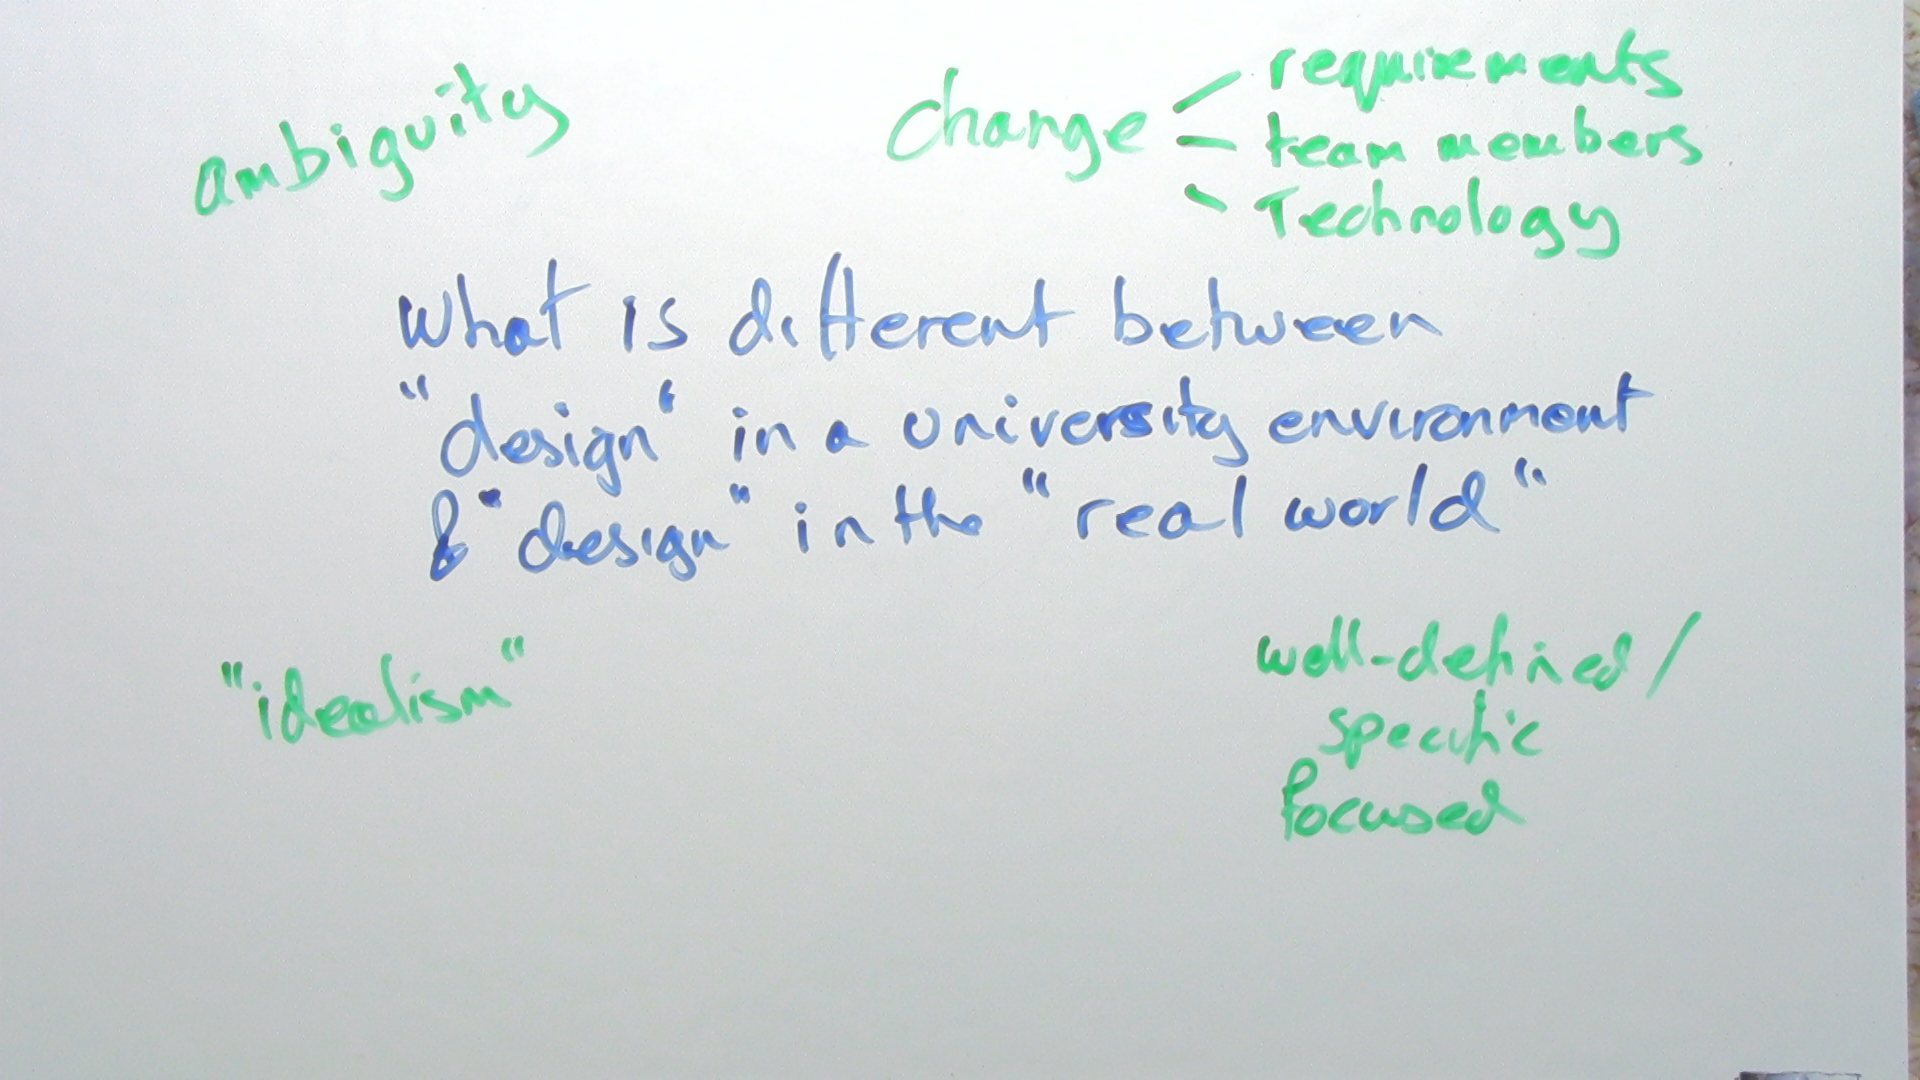 ambiguity
change
requirements
team members
Technology
What is different between
"design" in a university environment
& "design" in the "real world"
"idealism"
well-defined /
specific
focused